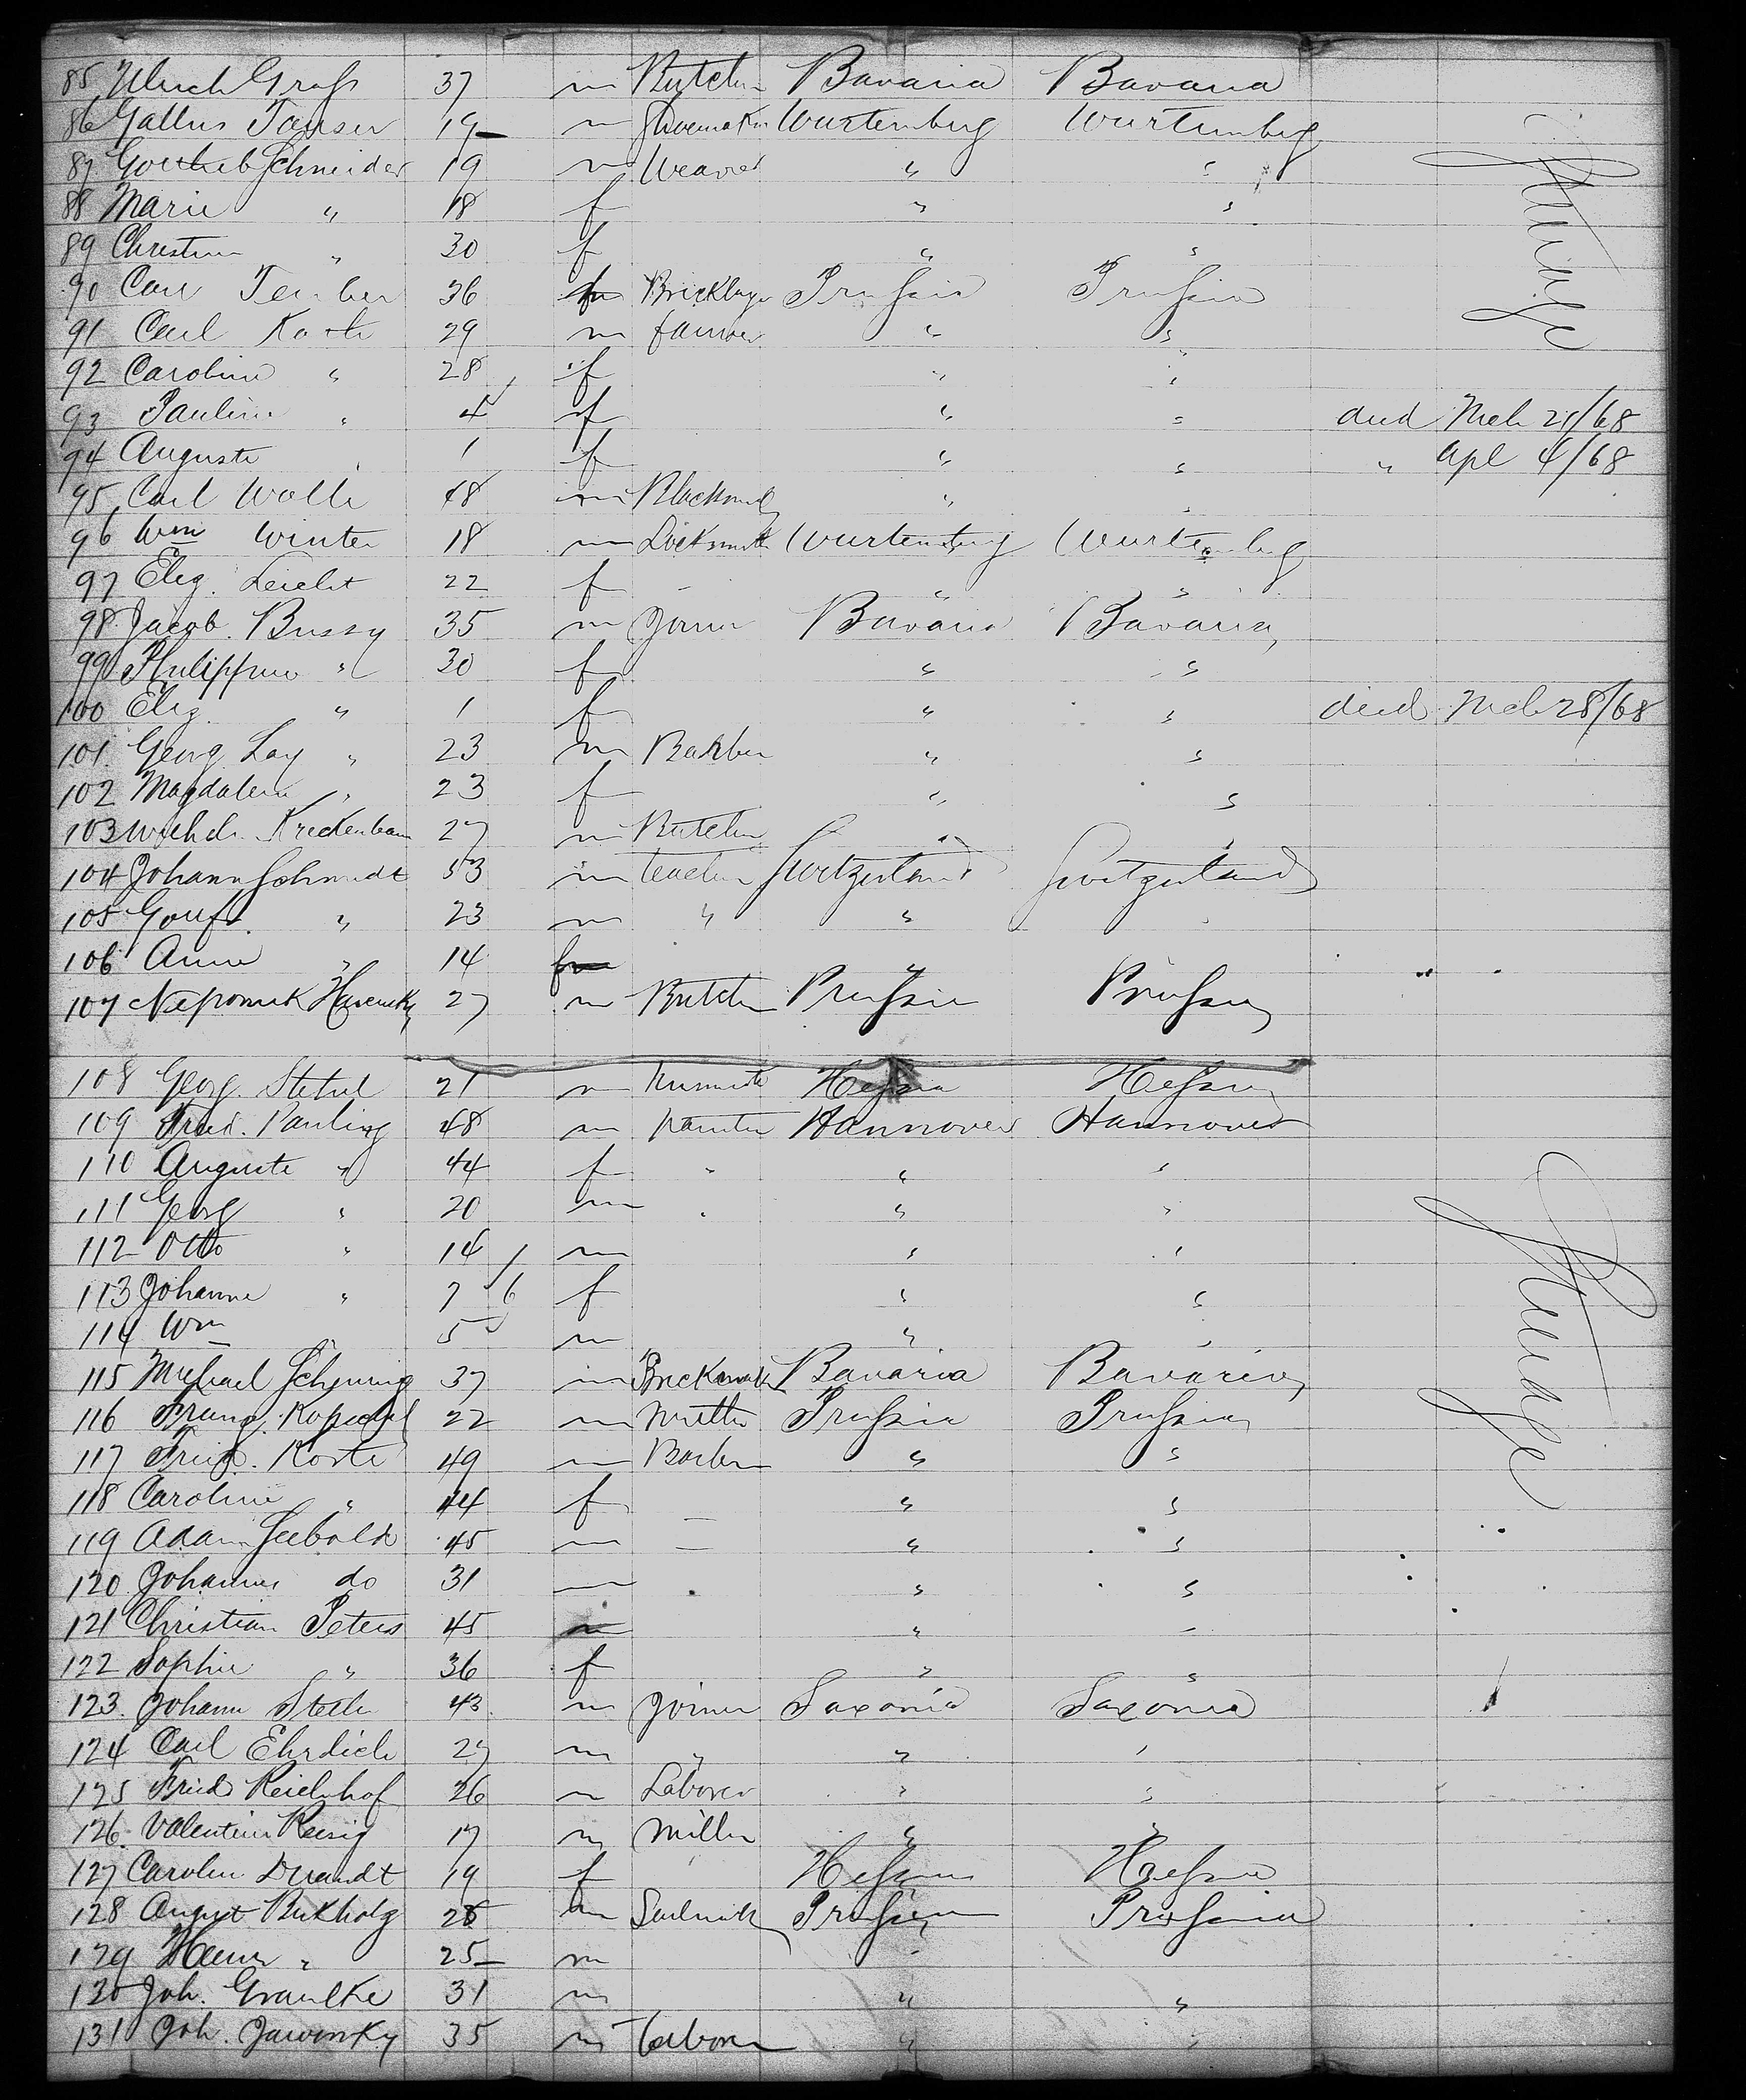 85 Ulrich Graß 37 m Butcher Bavaria Bavaria
86 Gallus Tauser 19 m Shoemaker Wurtemberg Wurtemberg
87 Gottlieb Schneider 19 m Weaver " "
88 Marie " 18 f " "
89 Christine " 30 f " "
90 Carl 36 m Bricklayer Prußia Prußia
91 Carl 29 m farmer " "
92 Caroline " 28 f " "
93 Pauline " 4 f " " died Mch 21/68
94 Auguste " 1 f " " " Apl 4/68
95 Carl Wolle 48 m Blacksmith " "
96 Wm Winter 18 m Locksmith Wurtemberg Wurtemberg
97 Eliz. Leicht 22 f - " "
98 Jacob Bussy 35 m Joiner Bavaria Bavaria
99 Philippine " 30 f " "
100 Eliz. " 1 f " " died Mch 28/68
101 Georg Lay " 23 m Barber " "
102 Magdalena " 23 f " "
103 Krekenbaum 27 m Butcher " "
104 Johann Schmidt 53 m teacher Switzerland Switzerland
105 " 23 m " " "
106 Anna " 14 f "
107 Nepomuk 27 m Butcher Prußia Prußia
108 Georg 21 m Heßia Heßia
109 Fried. Pauling 48 m painter Hannover Hannover
110 Auguste " 44 f " " "
111 Georg " 20 m " " "
112 Otto " 14 m " "
113 Johanne " 7 f " "
114 Wm 5 m " "
115 Michael 37 m Brickmaker Bavaria Bavaria
116 Franz 22 m Prußia Prußia
117 Fried. Korte 49 m " "
118 Caroline " 44 f " "
119 Adam Seebold 45 m — " "
120 Johannes do 31 m " "
121 Christian Peters 45 m " "
122 Sophie " 36 f " "
123 Johann 43 m Joiner Saxonia Saxonia
124 Carl Ehrlich 27 m " " "
125 Fried Reichhof 26 m Laborer " "
126 Valentin Resig 17 m Miller " "
127 Carolin 19 f Heßia Heßia
128 August Bukholz 28 m Prußia Prußia
129 " 25 m "
130 Joh. Graulke 31 m " "
131 Joh. Jaworsky 35 m Laborer " "
Steerage
Steerage